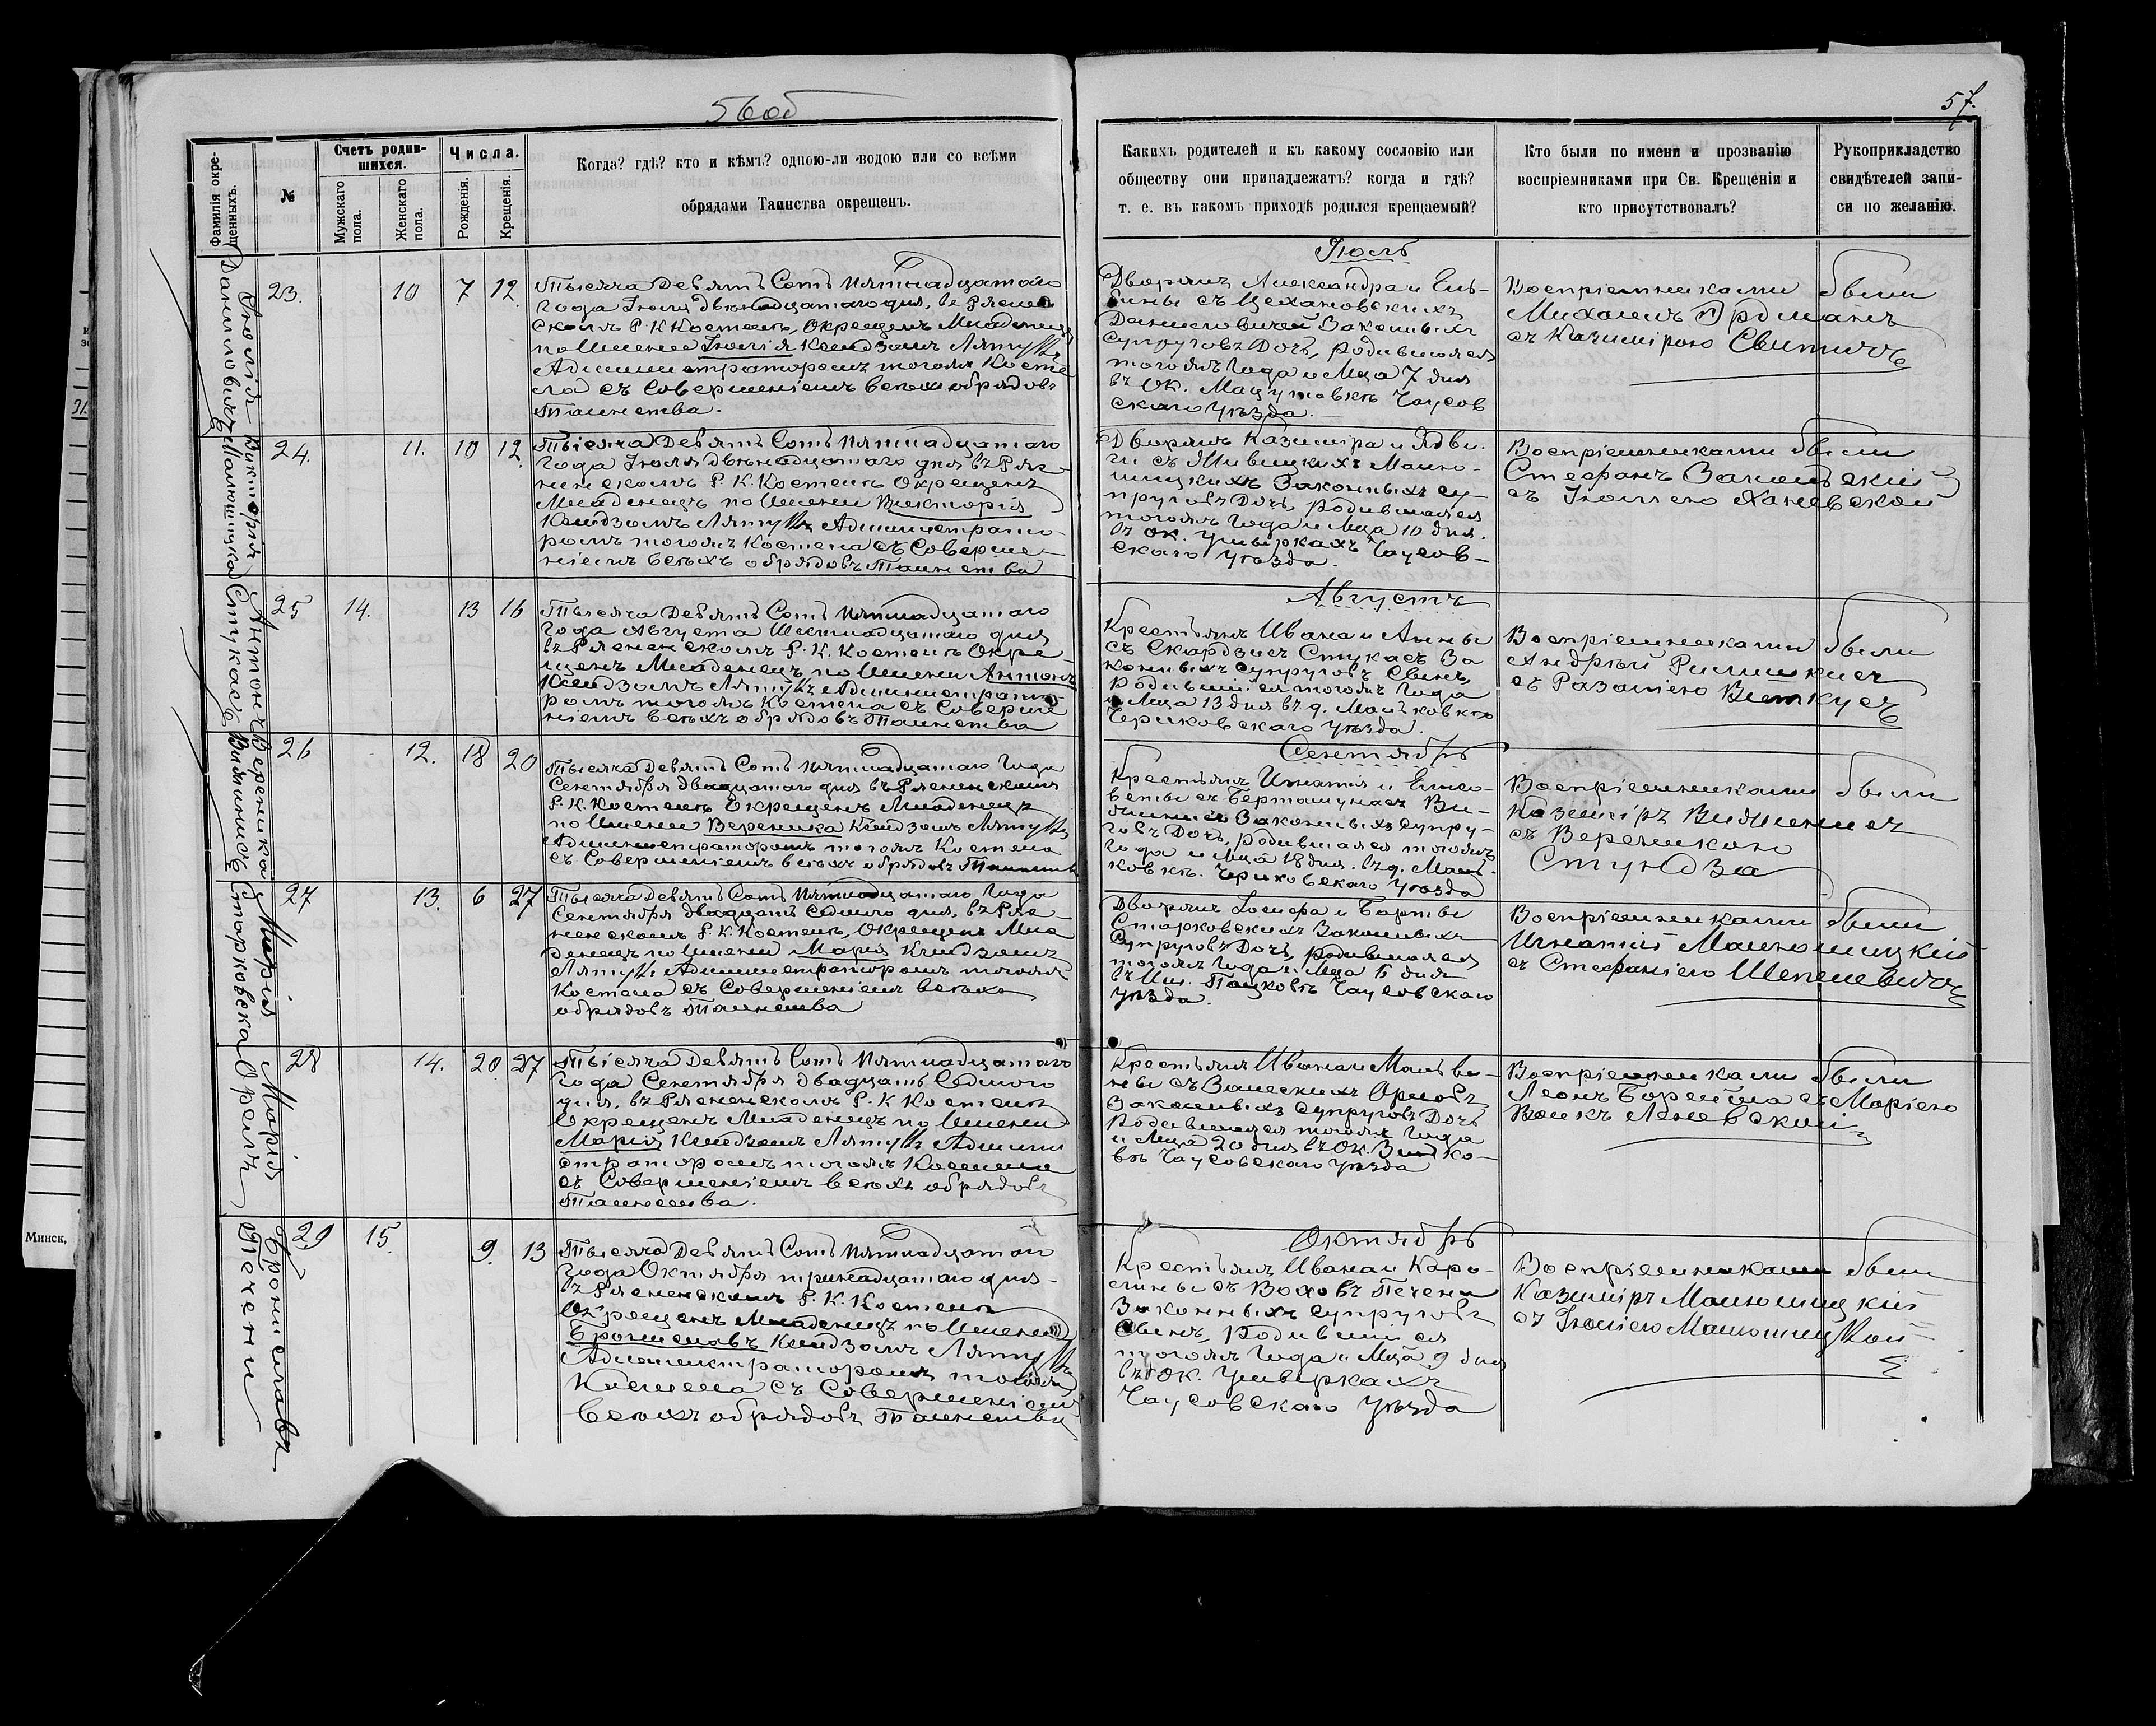 56об
57.
Фамилія окрещенныхъ.
№
Счетъ родившихся.
Мужскаго пола.
Женскаго пола.
Числа.
Рожденія.
Крещенія.
Когда? гдѣ? кто и кѣмъ? одною-ли водою или со всѣми
обрядами Таинства окрещенъ.
Какихъ родителей и къ какому сословію или
обществу они принадлежатъ? когда и гдѣ?
т. е. въ какомъ приходѣ родился крещаемый?
Кто были по имени и прозванію
воспріемниками при Св. Крещеніи и
кто присутствовалъ?
Рукоприкладство
свидѣтелей запи-
си по желанію.
Юлія
Даниловичъ
23.
10
7
12
Тысяча Девятъ Сотъ Пятнадцатаго
года Іюля двѣнадцатаго дня, въ Ряснен
скомъ Р. К Костелѣ, Окрещенъ Младенецъ
по Имени Юлія Ксендзомъ Ляту
Администраторомъ тогожъ Косте
ла съ Совершеніемъ всѣхъ обрядовъ
Таинства.
Іюль
Дворянъ Александра и Ель-
бины съ Цехановскихъ
Даниловичей Законныхъ
Супруговъ Дочь, родившаяся
тогожъ Года и Мца 7 дня
въ Ок. Чаусов
скаго Уѣзда.
Воспріемниками были
Михаилъ Эрдманъ
съ Казимірою Свитичъ
Викторія
Малюшицка
24.
11.
10
12
Тысяча Девятъ Сотъ Пятнадцатаго
Года Іюля двѣнадцатаго дня въ Ряс-
ненскомъ Р. К. Костелѣ Окрещенъ
Младенецъ по Имени Викторія
Ксендзомъ Ляту Администрато-
ромъ тогожъ Костела съ Соверше-
ніемъ всѣхъ обрядовъ Таинства
Дворянъ Казиміра и Ядви-
ги съ Малю-
шицкихъ Законныхъ су-
пруговъ Дочь, родившаяся
тогожъ Года и Мца 10 дня.
въ ок. Чаусов-
скаго Уѣзда.
Воспріемниками были
Стефанъ
съ Юліею Ханевской
Антонъ
Стукасъ
25
14.
13
16
Тысяча Девятъ Сотъ Пятнадцатаго
Года Августа Шестнадцатаго дня
въ Рясненскомъ Р. К. Костелѣ Окре-
щенъ Младенецъ по Имени Антонъ
Ксендзомъ Ляту Администрато-
ромъ тогожъ Костела съ Соверше
ніемъ всѣхъ обрядовъ Таинства
Августъ
Крестьянъ Ивана и Анны
съ Скардзисъ Стукасъ За
конныхъ Супруговъ Сынъ,
родившійся тогожъ Года
и Мца 13 дня въ д. Маньковкѣ
Чериковскаго Уѣзда.
Воспріемниками были
Андрей
съ Розаліею Виткусъ
Вереника
Видминисъ
26
12.
18
20
Тысяча Девятъ Сотъ Пятнадцатаго Года
Сентября двадцатаго дня въ Рясненскомъ
Р. К. Костелѣ Окрещенъ Младенецъ
по Имени Вереника Ксендзомъ Ляту
Администраторомъ тогожъ Костела
съ Совершеніемъ всѣхъ обрядовъ Таинства
Сентябрь
Крестьянъ Игнатія и Елиса-
веты съ Берташунасъ Ви-
Законныхъ Супру-
говъ Дочь, родившаяся тогожъ
Года и Мца 18 дня. въ д. Мань-
ковкѣ. Чериковскаго Уѣзда
Воспріемниками были
Казиміръ
съ Вереникою
Стундза
Марія
Старковска
27
13.
6
27
Тысяча Девятъ Сотъ Пятнадцатаго Года
Сентября двадцать Седмого дня, въ Ряс-
ненскомъ Р. К. Костелѣ, Окрещенъ Мла
денецъ по Имени Марія Ксендзомъ
Ляту Администраторомъ тогожъ
Костела съ Совершеніемъ всѣхъ
обрядовъ Таинства
Дворянъ Іосифа и Барты
Старковскихъ Законныхъ
Супруговъ Дочь, родившаяся
тогожъ Года и Мца 6 дня
въ Им. Пацковѣ Чаусовскаго
Уѣзда.
Воспріемниками были
Игнатій Малюшицкій
съ Стефаніею Шепелевичъ
Марія
Орелъ
28
14.
20
27
Тысяча Девятъ Сотъ Пятнадцатаго
Года Сентября двадцать Седмого
дня, въ Рясненскомъ Р. К Костелѣ
Окрещенъ Младенецъ по Имени
Марія Ксендзомъ Ляту Админи
страторомъ тогожъ Костела
съ Совершеніемъ всѣхъ обрядовъ
Таинства.
Крестьянъ Ивана и Мальви-
ны съ Залескихъ Орловъ
Законныхъ Супруговъ Дочь
Родившаяся тогожъ Года
и Мца 20 дня въ Ок.
Чаусовскаго Уѣзда
Воспріемниками были
Леонъ Борейша съ Маріею
Брониславъ
Печени
29
15.
9.
13
Тысяча Девятъ Сотъ Пятнадцатаго
Года Октября тринадцатаго дня-
въ Рясненскомъ Р. К. Костелѣ
Окрещенъ Младенецъ по Имени
Брониславъ Ксендзомъ Ляту
Администраторомъ тогожъ
Костела съ Совершеніемъ
всѣхъ обрядовъ Таинства
Октябрь
Крестьянъ Ивана и Каро-
лины съ Печени
Законныхъ Супруговъ
Сынъ, Родившійся
тогожъ Года и Мца 9 дня
въ Ок.
Чаусовскаго Уѣзда
Воспріемниками были
Казиміръ Малюшицкій
съ Юліею Малюшицкой
Минск,